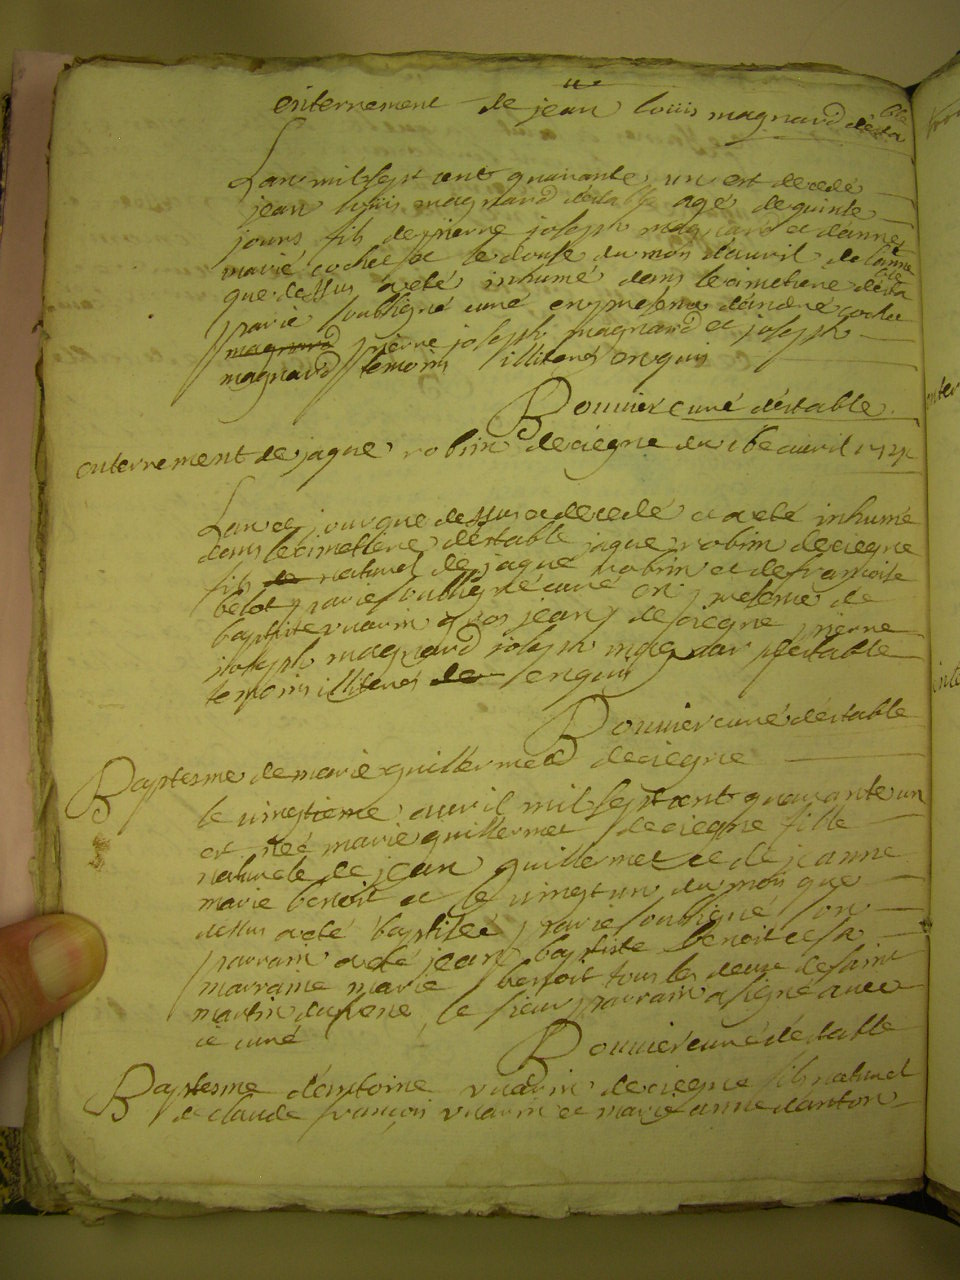 enterrement de jean louis magnard desta
ble
Lan mil sept cent quarante un est decedé
jean louis magnard destable agé de quinse
jours fils de pierre joseph magnard et danne
marie cochet et le douse du mois dauril de lanne
que dessus a eté inhumé dans le cimetiere desta
ble
par ie soubsigné curé en presence dandré coche
magnard pierre joseph magnard et joseph
magnard temoins illiteres enquis
Bouuier curé destable
enterrement de jaque robin deciegne du 16e auril 1741
Lan et jour que dessus a decedé et a eté inhumé
dans le cimettiere destable jaque robin deciegne
fils de naturel de jaque robin et de francoise
belot par ie soubsigné curé en presence de
baptiste vuarin gros jean de ciegne pierre
joseph magnard joseph magnar destable
temoins illiteres de enquis
Bouuier curé destable
Baptesme de marie guillermet deciegne
le uingtieme auril mil sept cent quarante un
est neé marie guillermet deciegne fille
naturele de jean guillermet et de jeanne
marie benoit et le uingt un du mois que
dessus a eté baptiseé par ie soubsigné son
parrain a eté jean baptiste benoit et sa
marraine marie benoit tous les deux de saint
martin du le sieur parrain a signé auec
ie curé
Bouuier curé destable
Baptesme dantoine vuarin deciegne fils naturel
de claude françois vuarin et marie anne danton